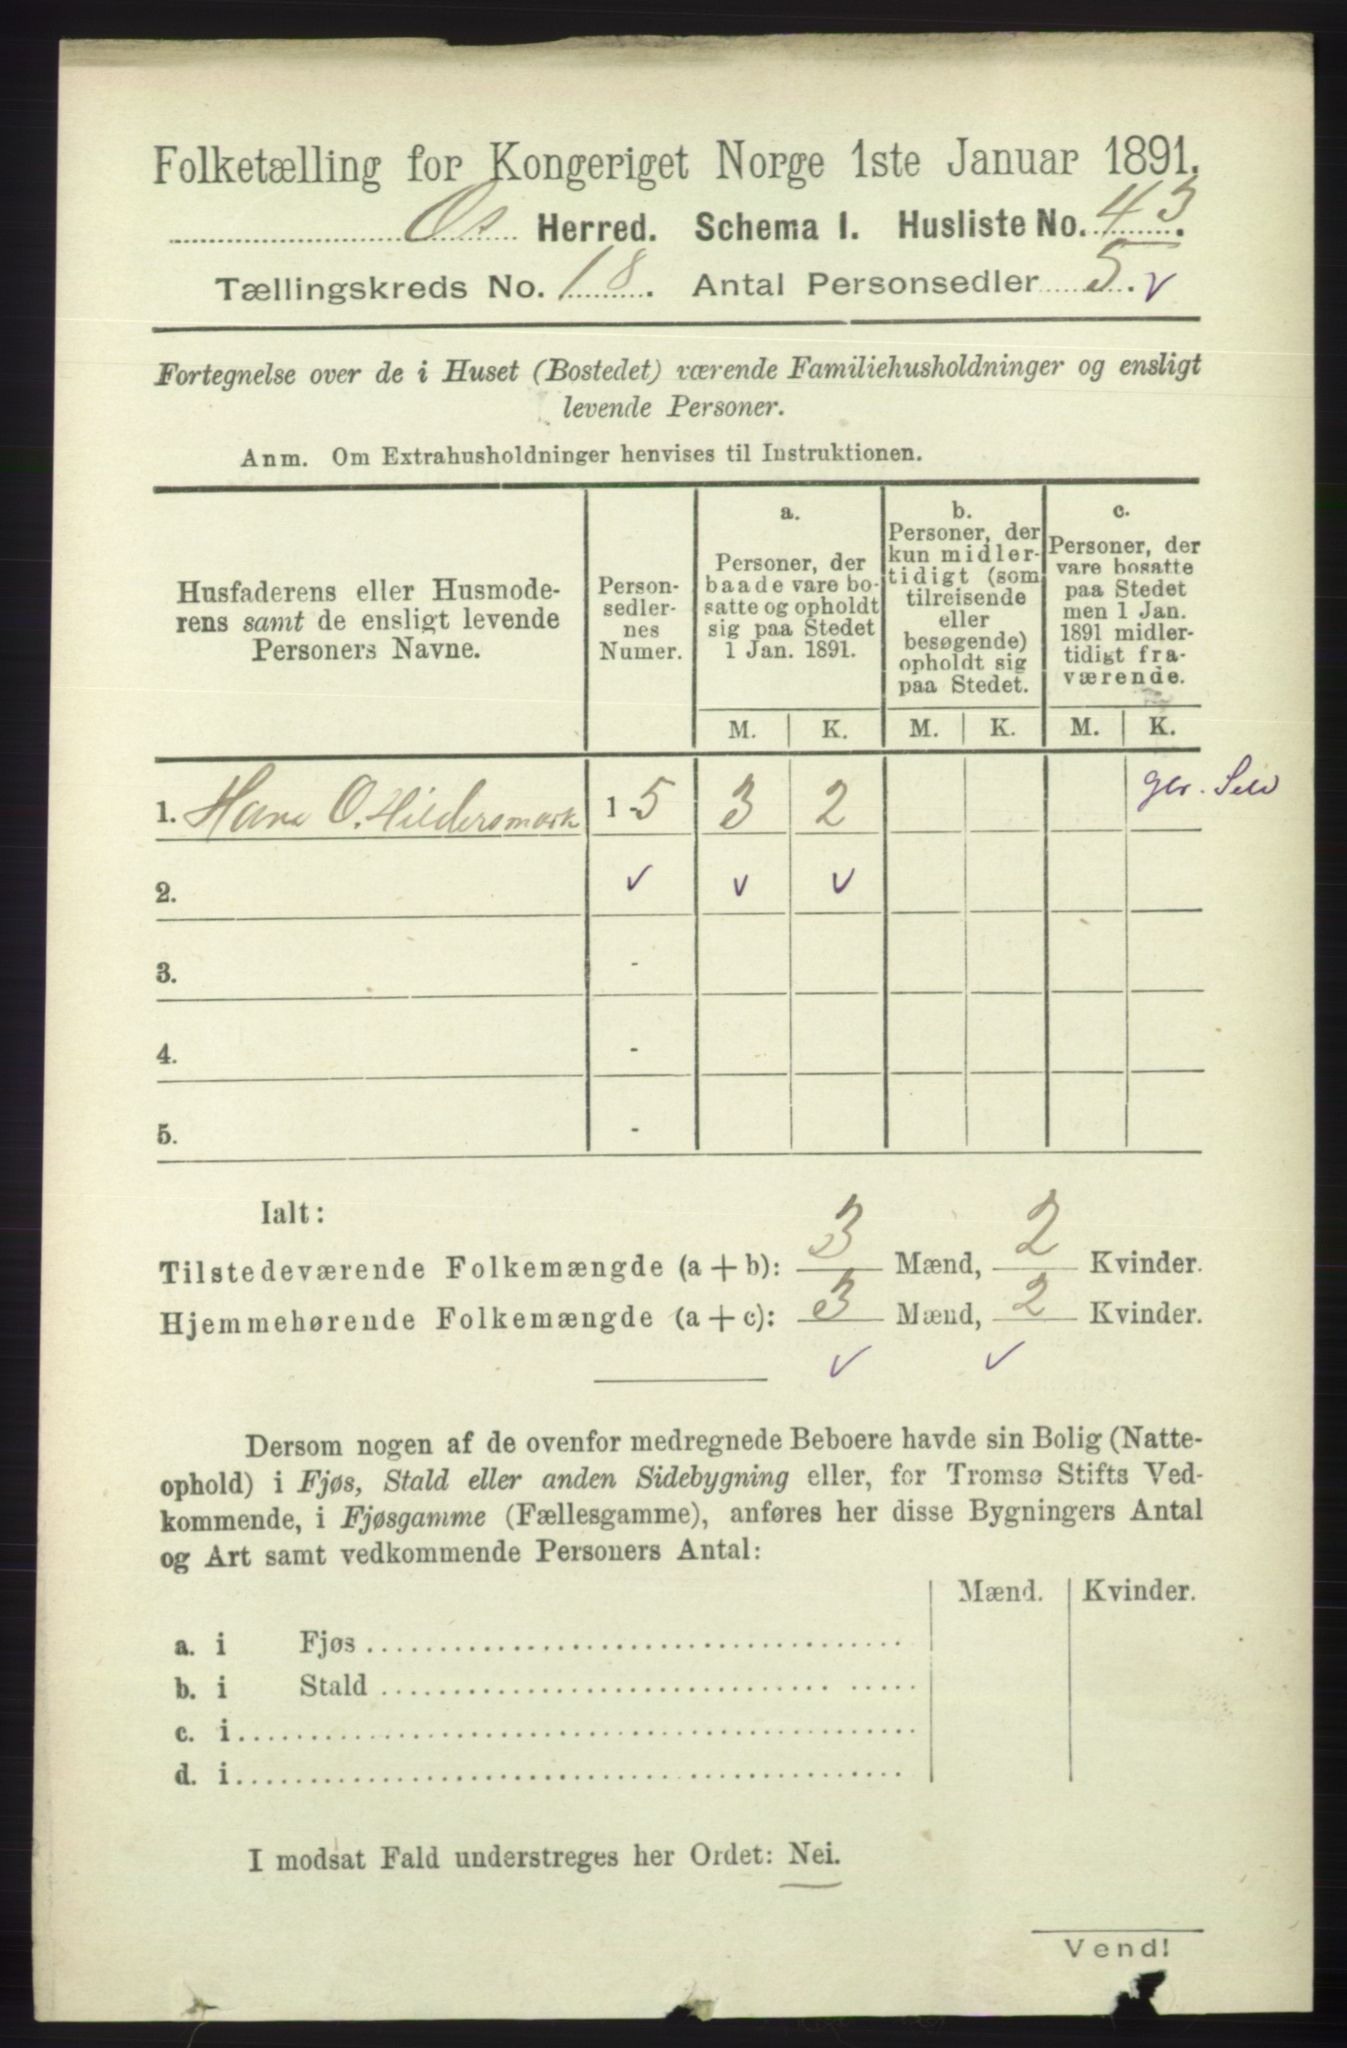 Folketælling for Kongeriget Norge 1ste Januar 1891.
Os Herred. Schema I. Husliste No. 43.
Tællingskreds No. 18. Antal Personsedler 5. ✓
Fortegnelse over de i Huset (Bostedet) værende Familiehusholdninger og ensligt
levende Personer.
Anm. Om Extrahusholdninger henvises til Instruktionen.
Husfaderens eller Husmode-
rens samt de ensligt levende
Personers Navne.
Person-
sedler-
nes
Numer.
a.
Personer, der
baade vare bo-
satte og opholdt
sig paa Stedet
1 Jan. 1891.
b.
Personer, der
kun midler-
tidigt (som
tilreisende
eller
besøgende)
opholdt sig
paa Stedet.
c.
Personer, der
vare bosatte
paa Stedet
men 1 Jan.
1891 midler-
tidigt fra-
værende.
M. K. M. K. M. K.
1. Hans O. Hildersmark 1-5 3 2
2. ✓ ✓ ✓
3. -
4. -
5. -
Ialt:
Tilstedeværende Folkemængde (a + b): 3 Mænd, 2 Kvinder.
Hjemmehørende Folkemængde (a + c): 3 Mænd, 2 Kvinder.
✓ ✓
Dersom nogen af de ovenfor medregnede Beboere havde sin Bolig (Natte-
ophold) i Fjøs, Stald eller anden Sidebygning eller, for Tromsø Stifts Ved-
kommende, i Fjøsgamme (Fællesgamme), anføres her disse Bygningers Antal
og Art samt vedkommende Personers Antal:
Mænd. Kvinder.
a. i Fjøs
b. i Stald
c. i
d. i
I modsat Fald understreges her Ordet: Nei.
Vend!